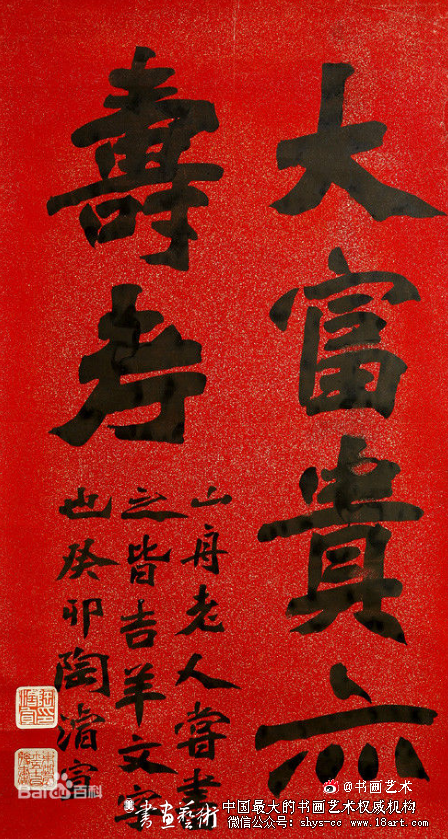 大富貴亦
壽考
山舟老人嘗書
之皆吉羊文字
也癸卯陶濬宣
Baidu百科
@书画艺术
書画藝術
中国最大的书画艺术权威机构
微信公众号: shys-cc www.18art.com